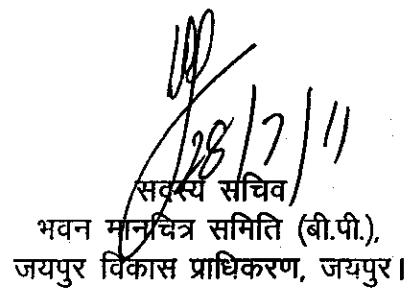 28/7/11
सदस्य सचिव
भवन मानचित्र समिति (बी.पी.),
जयपुर विकास प्राधिकरण, जयपुर।